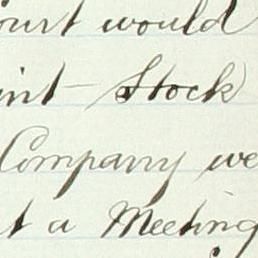 ourt would
int-Stock
Company we
t a Meeting